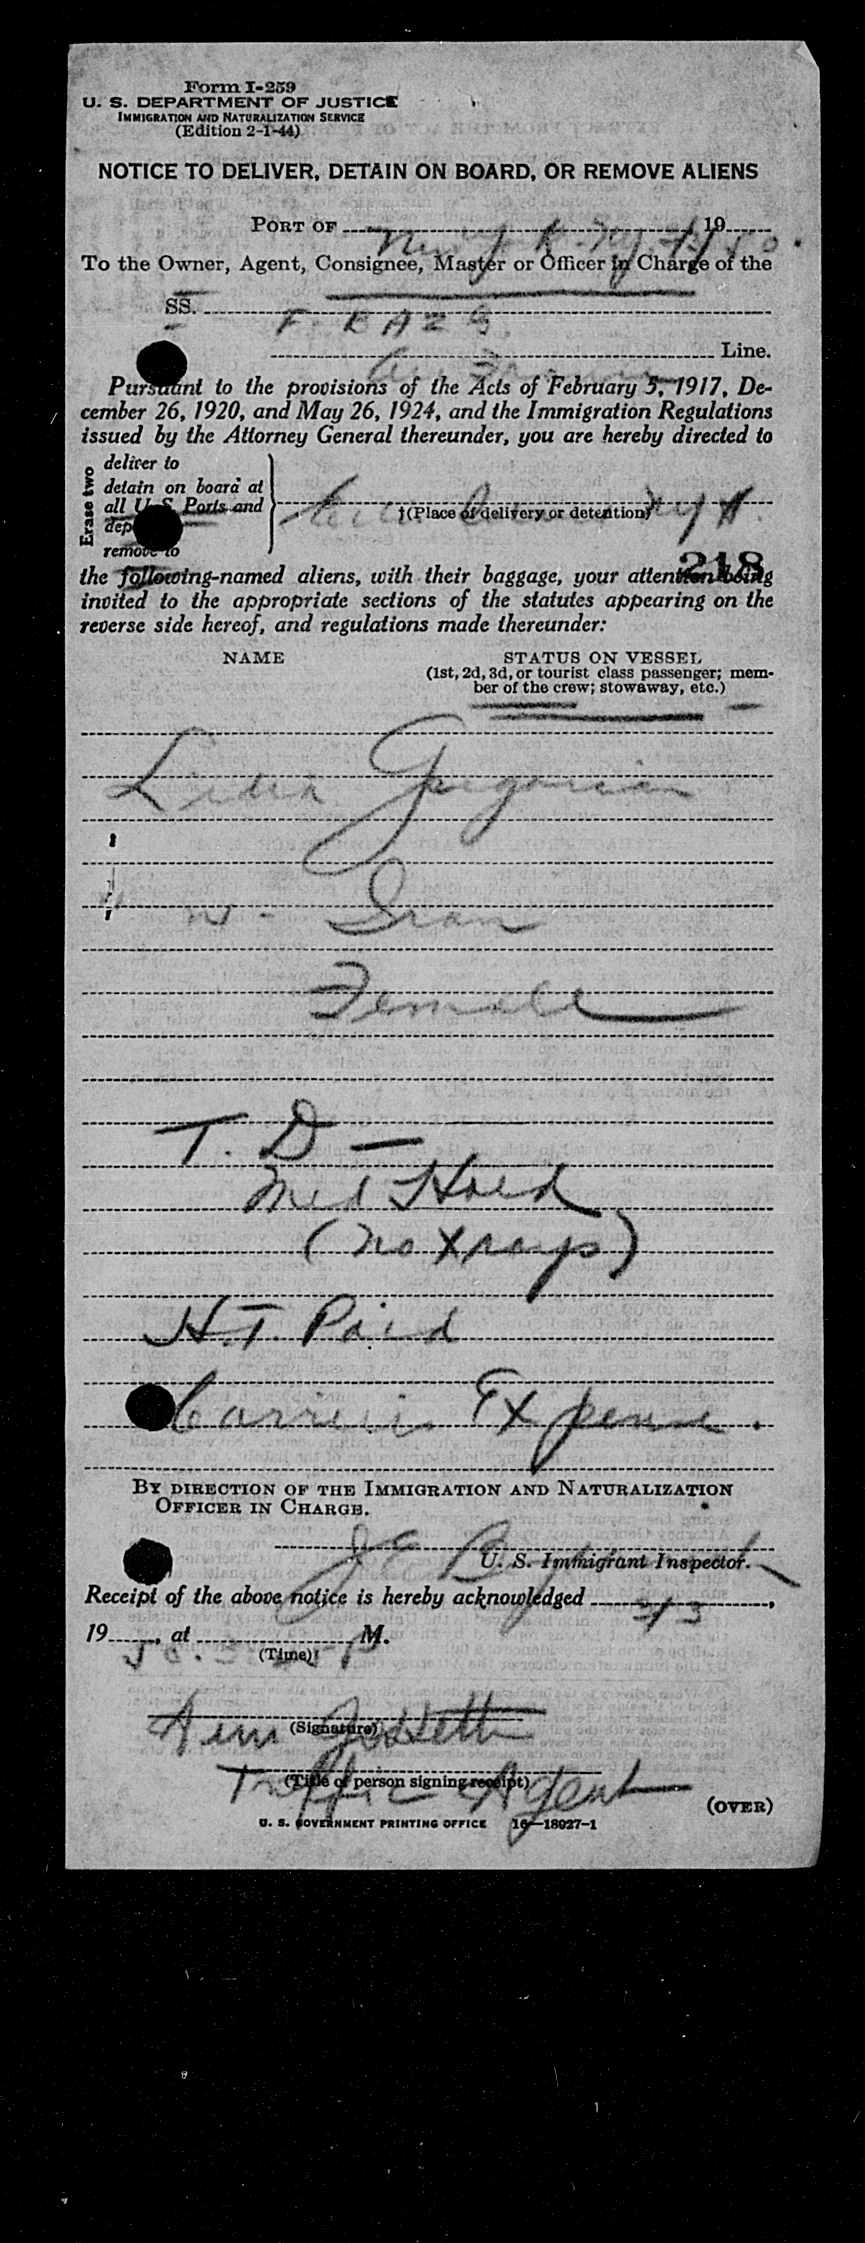 Form I-259
U. S. DEPARTMENT OF JUSTICE
IMMIGRATION AND NATURALIZATION SERVICE
(Edition 2-1-44)
NOTICE TO DELIVER, DETAIN ON BOARD, OR REMOVE ALIENS
PORT OF New York NY 19 50
To the Owner, Agent, Consignee, Master or Officer in Charge of the
SS. F. BAZG
Air France Line.
Pursuant to the provisions of the Acts of February 5, 1917, De-
cember 26, 1920, and May 26, 1924, and the Immigration Regulations
issued by the Attorney General thereunder, you are hereby directed to
Erase two
deliver to
detain on board at
all U S Ports and
dep
remove to
†(Place of delivery or detention)
218
the following-named aliens, with their baggage, your attention being
invited to the appropriate sections of the statutes appearing on the
reverse side hereof, and regulations made thereunder:
NAME STATUS ON VESSEL
(1st, 2d, 3d, or tourist class passenger; mem-
ber of the crew; stowaway, etc.)
Lidia Gregorian
w - Iran
Female
T. D —
Med Hold
(no Xrays)
H.T. Paid
Carriers Expense.
BY DIRECTION OF THE IMMIGRATION AND NATURALIZATION
OFFICER IN CHARGE.
U. S. Immigrant Inspector.
Receipt of the above notice is hereby acknowledged 3/3,
19 50, at M.
(Time)
(Signature)
Traffic Agent
(Title of person signing receipt)
(OVER)
U. S. GOVERNMENT PRINTING OFFICE 16—18027-1